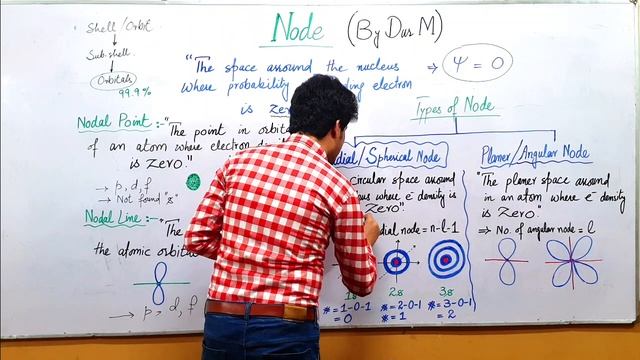 Node (By Das M)
Shell/Orbit
Sub.shell
Orbitals
99.9%
"The space around the nucleus
where probability electron
is
→ Ψ = 0
Types of Node
Nodal Point :- "The point in
of an atom where electron
is Zero."
→ p, d, f
→ Not found "s"
Nodal Line :-
the atomic
→ p, d, f
/Spherical Node
circular space around
where e⁻ density is
Zero".
node = n-l-1
1s
* = 1-0-1
= 0
2s
* = 2-0-1
* = 1
3s
* = 3-0-1
= 2
Planer/Angular Node
"The planer space around
in an atom where e⁻ density
is Zero"
⇒ No. of angular node = l